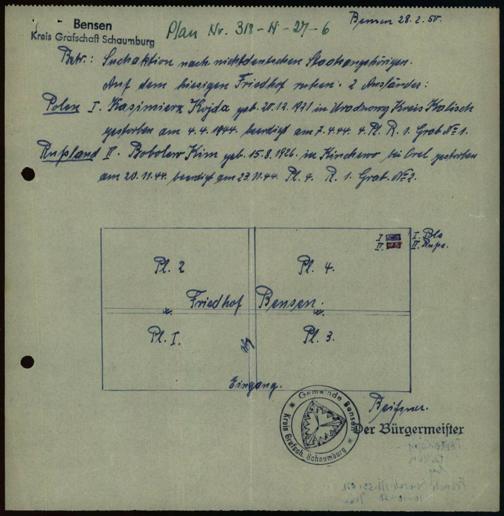 Bensen
Kreis Grafschaft Schaumburg
Plan Nr. 318-N-27-6
Bensen 28.2.50.
Betr.: Suchaktion nach nichtdeutschen Staatsangehörigen.
Auf dem hiesigen Friedhof ruhen 2 Ausländer:
Polen I. Kazimierz Kojda geb. 20.12.1921 in Kreis Kalisch
gestorben am 4.4.1944. beerdigt am 7.4.44. 4. Pl. R. 1. Grab № 1.
Rußland II. Bobolew Kim geb. 15.8.1926. in bei Orel gestorben
am 20.11.44. beerdigt am 23.11.44. Pl. 4. R. 1 Grab. № 2.
I
II
I. Pole
II. Russe.
Pl. 2
Pl. 4.
Friedhof Bensen.
Pl. I.
Pl. 3.
Weg
Eingang.
Gemeinde Bensen
Kreis Grafsch. Schaumburg
Der Bürgermeister